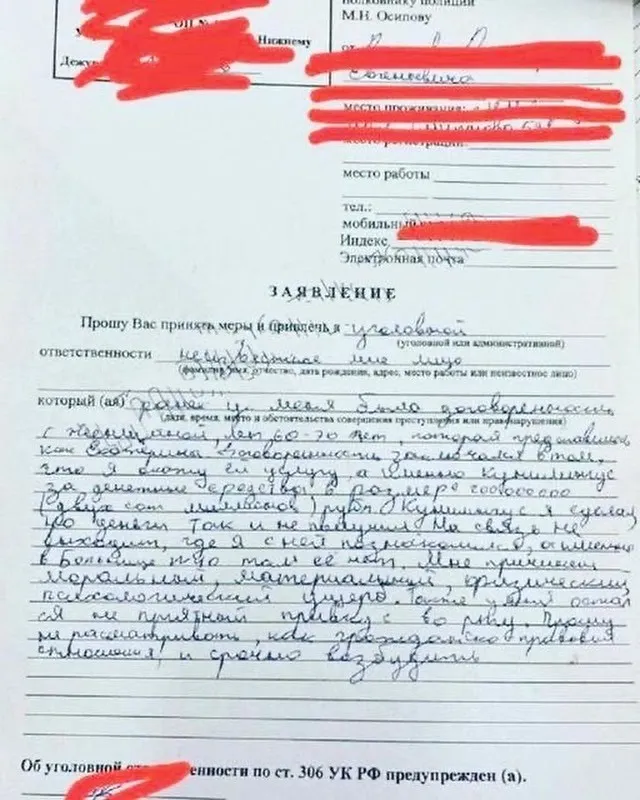 полковнику полиции
ОП №
М.Н. Осипову
Нижнему
от
Дежу
Евгеньевича
место проживания:
место регистрации:
место работы
тел.:
мобильный
Индекс
Электронная почта
ЗАЯВЛЕНИЕ
Прошу Вас принять меры и привлечь к уголовной
(уголовной или административной)
ответственности неизвестное мне лицо
(фамилия имя, отчество, дата рождения, адрес, место работы или неизвестное лицо)
который (ая) ранее у меня была договоренность
(дата, время, место и обстоятельства совершения преступления или правонарушения)
с женщиной, лет 60-70 лет, которая представилась
как Екатерина договоренность заключался в том,
что я окажу ей услугу, а именно Кунилингус
за денежные средства в размере 200000000
(двух сот миллионов) рубл. Кунилингус я сделал,
но деньги так и не получил На связь не
выходит, где я с ней познакомился, а именно
в Больнице там её нет. Мне причинен
моральный, материальный, физический
психологический ущерб. Также у меня остал
ся не приятный привкус во рту. Прошу
не рассматривать, как гражданско правовые
отношения, и срочно возбудить
Об уголовной енности по ст. 306 УК РФ предупрежден (а).